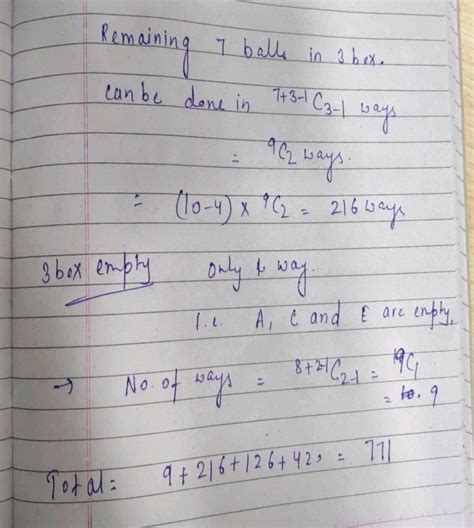 Remaining 7 balls in 3 box.
can be done in ⁷⁺³⁻¹C₃₋₁ ways
= ⁹C₂ ways.
= (10-4) x ⁹C₂ = 216 ways
3 box empty only way.
i.e. A, C and E are empty.
→ No. of ways = ⁸⁺²⁻¹C₂₋₁ = ⁹C₁
= 9
Total = 9 + 216 + 126 + 420 = 771